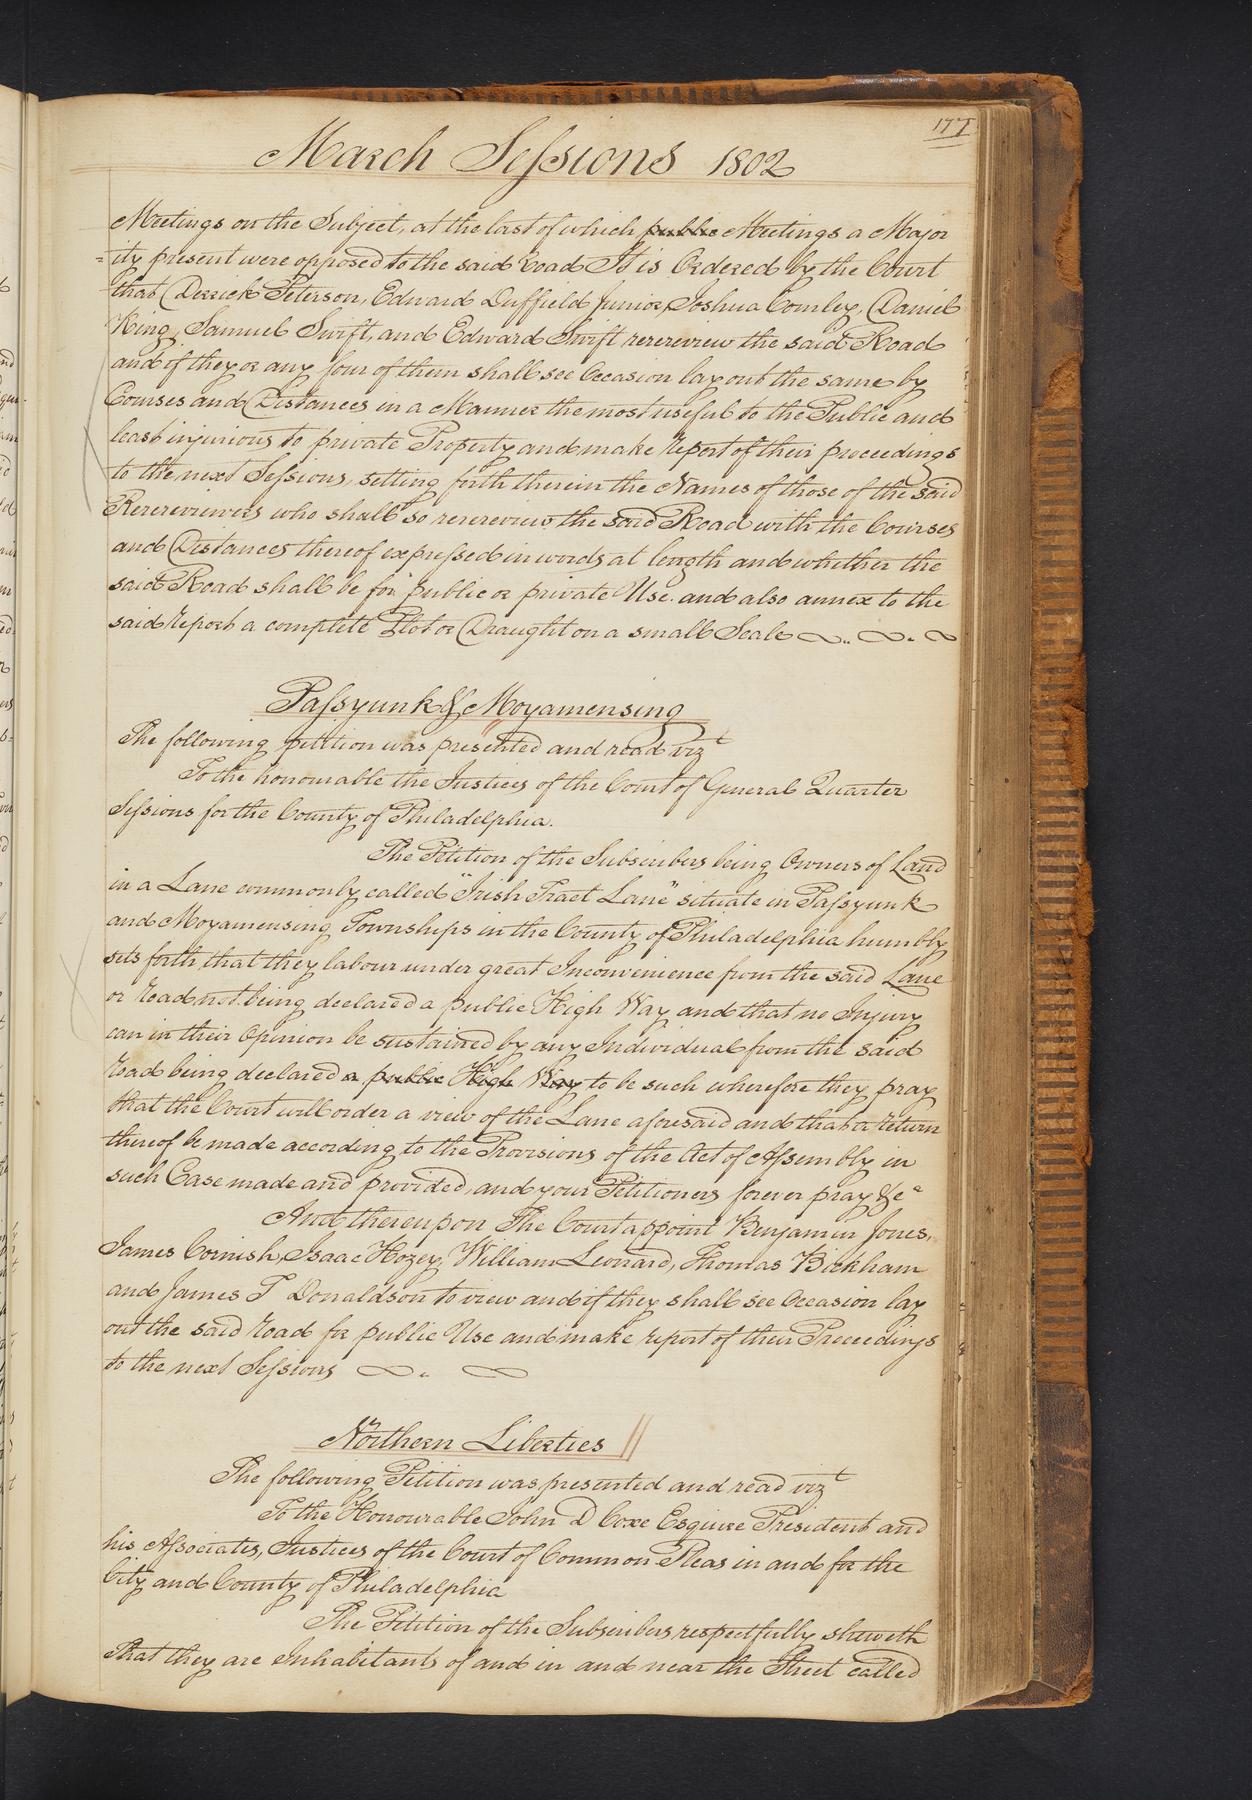 177
March Sessions 1802
Meetings on the Subject, at the last of which public Meetings a Major
=ity present were opposed to the said Road It is Ordered by the Court
that Derrick Peterson, Edward Duffield Junior, Joshua Comley, Daniel
King, Samuel Swift, and Edward Swift rerereview the said Road
and if they or any four of them shall see Occasion lay out the same by
Courses and Distances in a Manner the most useful to the Public and
least injurious to private Property and make report of their proceedings
to the next Sessions, setting forth therein the Names of those of the said
Rerereviewers who shall so rerereview the said Road with the Courses
and Distances thereof expressed in words at length and whether the
said Road shall be for public or private Use and also annex to the
said report a complete Plot or Draught on a small Scale
Passyunk & Moyamensing
The following petition was presented and read vizt
To the honourable the Justices of the Court of General Quarter
Sessions for the County of Philadelphia.
The Petition of the Subscribers being Owners of Land
in a Lane commonly called "Irish Tract Lane" situate in Passyunk
and Moyamensing Townships in the County of Philadelphia humbly
sets forth that they labour under great Inconvenience from the said Lane
or road not being declared a public High Way and that no Injury
can in their Opinion be sustained by any Individual from the said
road being declared a public High Way to be such wherefore they pray
that the Court will order a view of the Lane aforesaid and that a return
thereof be made according to the Provisions of the Act of Assembly in
such Case made and provided, and your Petitioners forever pray &ca
And thereupon The Court appoint Benjamin Jones,
James Cornish, Isaac Hozey, William Leonard, Thomas Bickham
and James T Donaldson to view and if they shall see Occasion lay
out the said road for public Use and make report of their Proceedings
to the next Sessions
Northern Liberties
The following Petition was presented and read vizt
To the Honourable John D Coxe Esquire President and
his Associates, Justices of the Court of Common Pleas in and for the
City and County of Philadelphia
The Petition of the Subscribers respectfully sheweth
That they are Inhabitants of and in and near the Street called